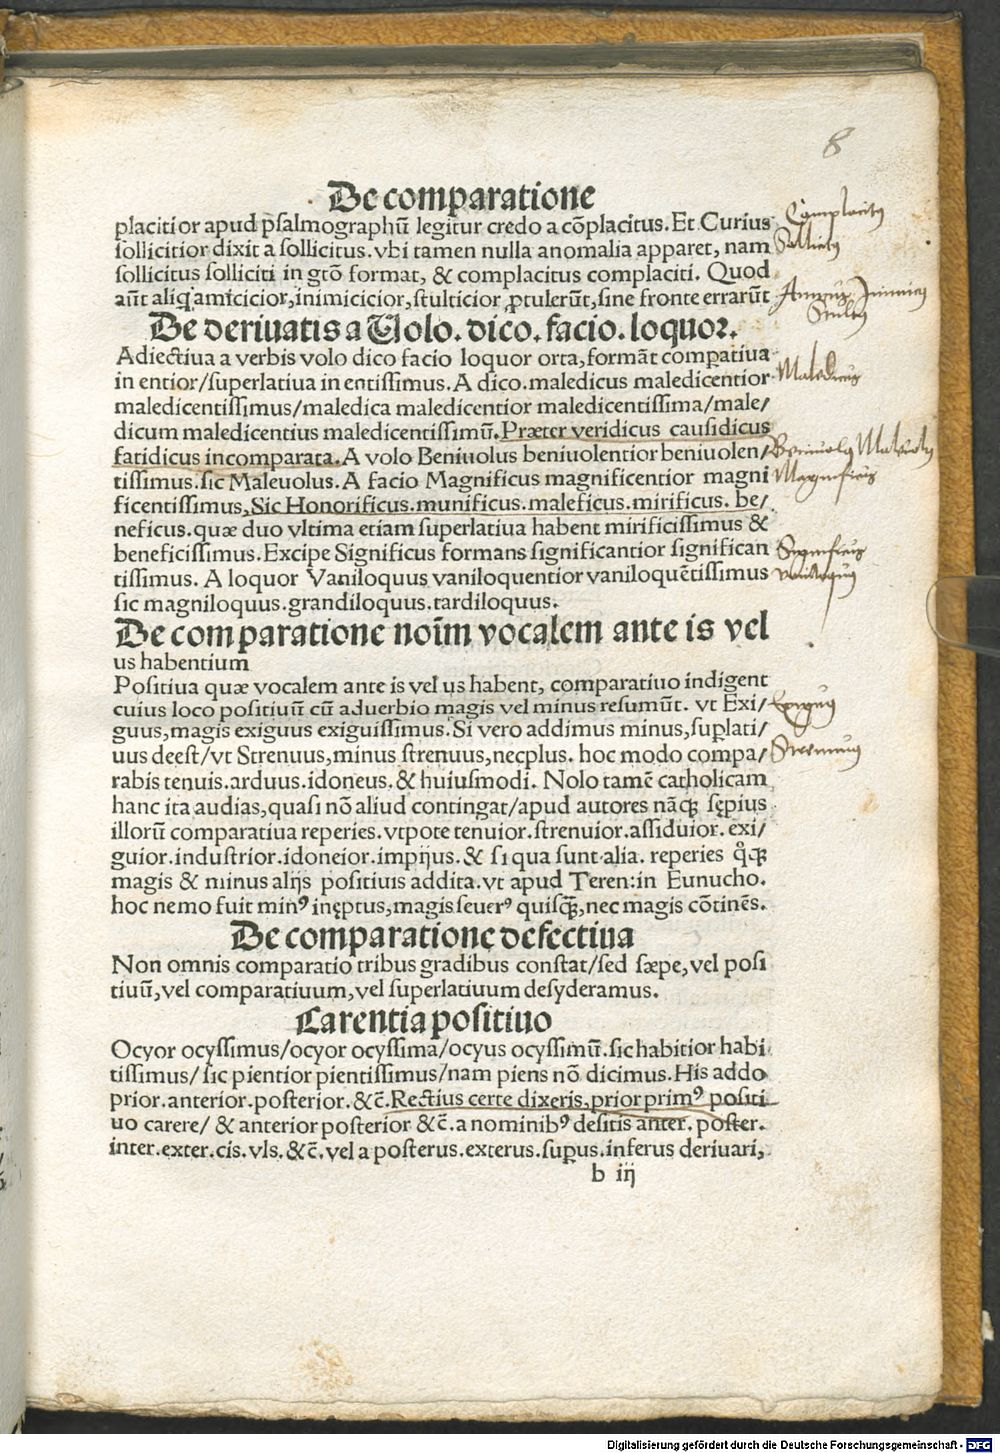 8
De comparatione
placitior apud p̄salmographū legitur credo a cōplacitus. Et Curius
sollicitior dixit a sollicitus. vbi tamen nulla anomalia apparet, nam
sollicitus solliciti in gtō format, & complacitus complaciti. Quod
aūt aliq amicicior, inimicicior, stulticior ꝓtulerūt, sine fronte errarūt
De deriuatis a Uolo. dico. facio. loquor.
Adiectiua a verbis volo dico facio loquor orta, formāt comꝑatiua
in entior/superlatiua in entissimus. A dico. maledicus maledicentior
maledicentissimus/maledica maledicentior maledicentissima/male/
dicum maledicentius maledicentissimū. Præter veridicus causidicus
fatidicus incomparata. A volo Beniuolus beniuolentior beniuolen/
tissimus. sic Maleuolus. A facio Magnificus magnificentior magni
ficentissimus, Sic Honorificus. munificus. maleficus. mirificus. be/
neficus. quæ duo vltima etiam superlatiua habent mirificissimus &
beneficissimus. Excipe Significus formans significantior significan
tissimus. A loquor Vaniloquus vaniloquentior vaniloquētissimus
sic magniloquus. grandiloquus. tardiloquus.
De comparatione noīm vocalem ante is vel
us habentium
Positiua quæ vocalem ante is vel us habent, comparatiuo indigent
cuius loco positiuū cū aduerbio magis vel minus resumūt. vt Exi/
guus, magis exiguus exiguissimus. Si vero addimus minus, suꝑlati/
uus deest/vt Strenuus, minus strenuus, necplus. hoc modo compa/
rabis tenuis. arduus. idoneus. & huiusmodi. Nolo tamē catholicam
hanc ita audias, quasi nō aliud contingat/apud autores nāqꝫ sępius
illorū comparatiua reperies. vtpote tenuior. strenuior. assiduior. exi/
guior. industrior. idoneior. impijus. & si qua sunt alia. reperies qͦqꝫ
magis & minus alijs positiuis addita. vt apud Teren: in Eunucho.
hoc nemo fuit minꝰ inęptus, magis seuerꝰ quisqꝫ, nec magis cōtinēs.
De comparatione defectiua
Non omnis comparatio tribus gradibus constat/sed sæpe, vel posi
tiuū, vel comparatiuum, vel superlatiuum desyderamus.
Carentia positiuo
Ocyor ocyssimus/ocyor ocyssima/ocyus ocyssimū. sic habitior habi
tissimus/ sic pientior pientissimus/nam piens nō dicimus. His addo
prior. anterior. posterior. &c̄. Rectius certe dixeris, prior primꝰ positi
uo carere/ & anterior posterior &c̄. a nominibꝰ desitis anter. poster.
inter. exter. cis. vls. &c̄. vel a posterus. exterus. suꝑus. inferus deriuari,
b iij
Complacitus
Sollicitus
Amicus Inimicus
Stultus
Maledicus
Beniuolus Maleuolus
Magnificus
Significus
vaniloquus
Exiguus
Strennuus
Digitalisierung gefördert durch die Deutsche Forschungsgemeinschaft - DFG